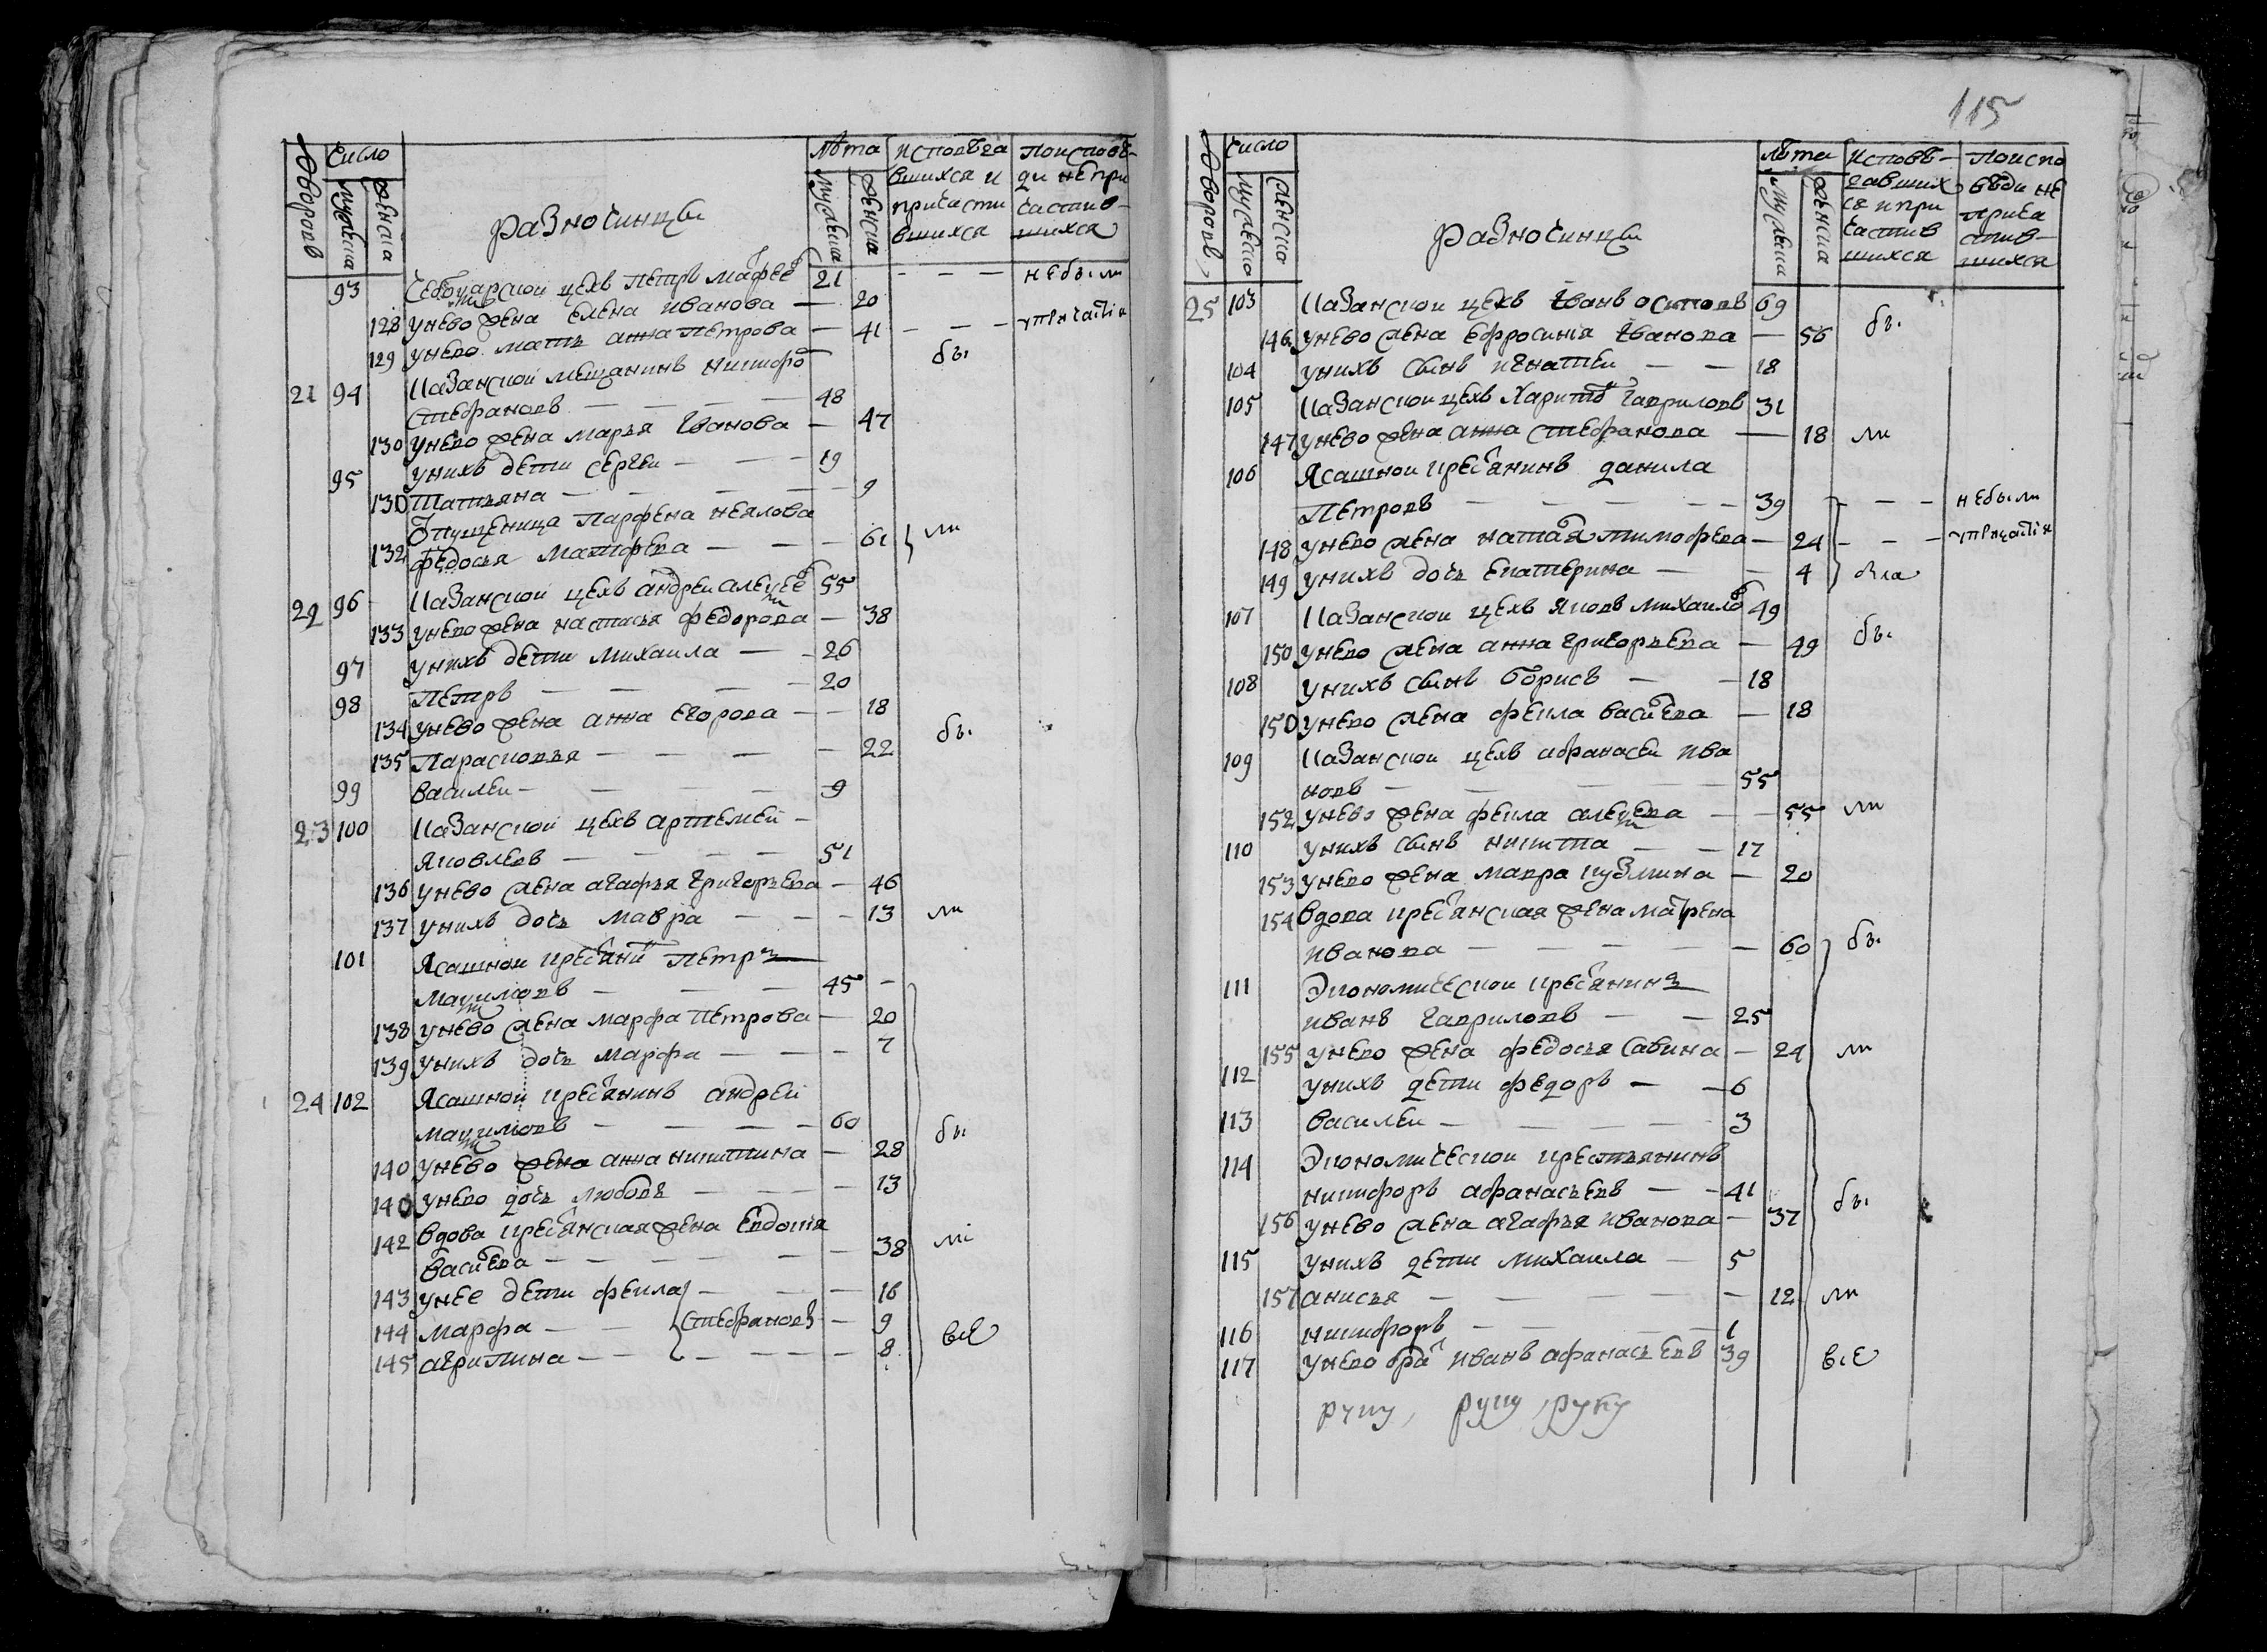 дворовъ
число
мужеска
женска
разночинцы
лѣта
мужеска
женска
исповѣда
вшихся и
причасти
вшихся
по исповѣ-
ди не при
частив-
шихся
93 Чебоѯарскои цехъ Петръ Мафее 21 — — — небыли
128 у него жена Елена Иванова — 20
129 у него мать Анна Петрова — 41 — — — упричастія
бы
21 94 Казанскои мещанинъ Никифо
Стефановъ — — — — 48
130 у него жена Марья Іванова — 47
95 у нихъ дети Сергеи — — — 19
130 Татьяна — — — — — 9
Ѿпущеница Парфена Неялова
132 Федосья Матфева — — — 61 ли
22 96 Казанскои цехъ Андреи Алеѯее 55
133 у него жена Настасья Федорова — 38
97 у нихъ дети Михаила — — 26
98 Петръ — — — — 20
134 у него жена Анна Егорова — — 18
бы
135 Парасковья — — — — — 22
99 Василеи — — — — — 9
23 100 Казанскои цехъ Артемеи —
Яковлевъ — — — — 51
136 у него жена Агафья Григорьева — 46
137 у нихъ дочь Мавра — — — 13 ли
101 Ясашнои крестьянинъ Петръ
Маѯимовъ — — — 45 —
138 у него жена Марфа Петрова — 20
139 у нихъ дочь Марфа — — — 7
24 102 Ясашнои крестьянинъ Андреи
Маѯимовъ — — — — 60
бы
140 у него жена Анна Никитина — 28
140 у него дочь Любовь — — — — 13
142 вдова крестьянская жена Евдокія
Василева — — — — — — 38 ли
143 у нее дети Фекла — — — 16
144 Марфа — — Стефановы — 9 все
145 Агрипина — — — — — — 8
115
дворовъ
число
мужеска
женска
разночинцы
лѣта
мужеска
женска
исповѣ-
давших
ся и при
частив
шихся
по испо
вѣди не
прича
стив-
шихся
25 103 Казанскои цехъ Іванъ Осиповъ 69
бы
146 у него жена Ефросинія Іванова — 56
104 у нихъ сынъ Игнатеи — — 18
105 Казанскои цехъ Харито Гавриловъ 31
147 у него жена Анна Стефанова — 18 ли
106 Ясашнои крестьянинъ Данила
Петровъ — — — — — 39 — — — небыли
148 у него жена Наталья Тимофева — 24 — — — упричастія
149 у нихъ дочь Екатерина — — 4 была
107 Казанскои цехъ Яковъ Михаило 49
бы
150 у него жена Анна Григорьева — 49
108 у нихъ сынъ Борисъ — — 18
150 у него жена Фекла Василева — 18
109 Казанскои цехъ Афанасеи Ива
новъ — — — — 55
152 у него жена Фекла Алеѯева — — 55 ли
110 у нихъ сынъ Никита — — 17
153 у него жена Мавра Кузмина — 20
154 вдова крестьянская жена Матрена
Иванова — — — — — 60 бы
111 Экономическои крестьянинъ
Иванъ Гавриловъ — — 25
155 у него жена Федосья Савина — 24 ли
112 у нихъ дети Федоръ — — 6
113 Василеи — — — — 3
114 Экономическои крестьянинъ
Никифоръ Афанасьевъ — — 41
бы
156 у него жена Агафья Иванова — 37
115 у нихъ дети Михаила — 5
157 Анисья — — — — — 12 ли
116 Никифоръ — — — — 1
117 у него бра Иванъ Афанасьевъ 39 все
руку, руку, руку